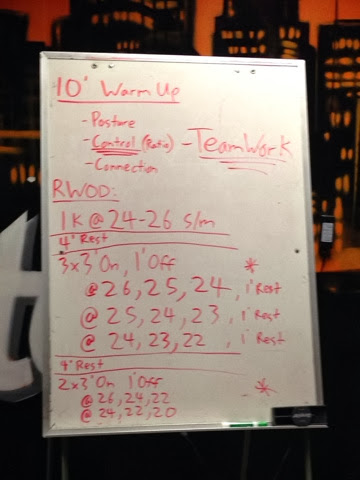 10' Warm Up
- Posture
- Control (Ratio) - TeamWork
- Connection
RWOD:
1K @ 24-26 s/m
4' Rest
3x3' On, 1' Off *
@ 26, 25, 24, 1' Rest
@ 25, 24, 23, 1' Rest
@ 24, 23, 22, 1' Rest
4' Rest
2x3' On 1' Off *
@ 26, 24, 22
@ 24, 22, 20